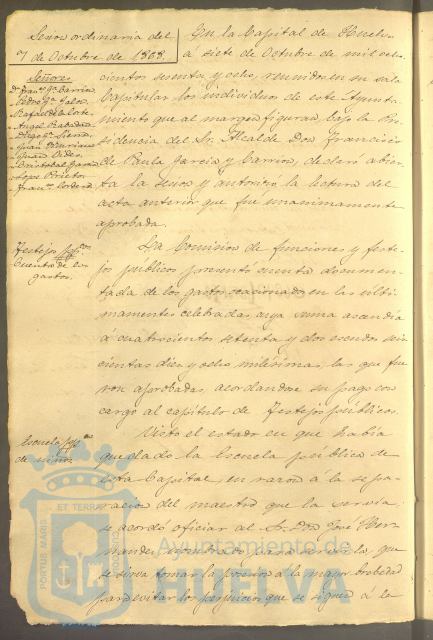 Sesion ordinaria del
7 de Octubre de 1868.
Señores
Pedro Gª Jalon
Rafael de la Corte
Diego Gª Sierra
Cristobal Garcia
Lope Prieto
Franco Cordero
En la Capital de Huelva
a siete de Octubre de mil ocho
cientos sesenta y ocho, reunidos en su sala
Capitular los individuos de este Ayunta-
miento que al margen figuran, bajo la Pre-
sidencia del Sr. Alcalde Don Francisco
de Paula Garcia y Barrion, declaró abier-
ta la sesion y autorizó la lectura del
acta anterior que fue unanimamente
aprobada.
Festejos pcos
Cuenta de los
gastos.
La Comision de funciones y feste-
jos públicos presentó cuenta documen-
tada de los gastos ocacionados en las últi-
mamentes celebradas, cuya suma ascendia
á cuatrocientos setenta y dos escudos seis
cientas diez y ocho milésimas, las que fue
ron aprobadas, acordandose su pago con
cargo al capítulo de Festejos públicos.
Escuela pca
de niños.
Visto el estado en que habia
quedado la Escuela pública de
esta Capital, en razon á la sepa-
racion del maestro que la servia,
se acordó oficiar al Sr. Don José Her-
nandez, nombrado para servirla, que
se sirva tomar la posesion á la mayor brebedad
para evitar los perjuicios que se siguen á la
PORTUS MARIS
ET TERRAE
CUSTODIA
Ayuntamiento de
HUELVA